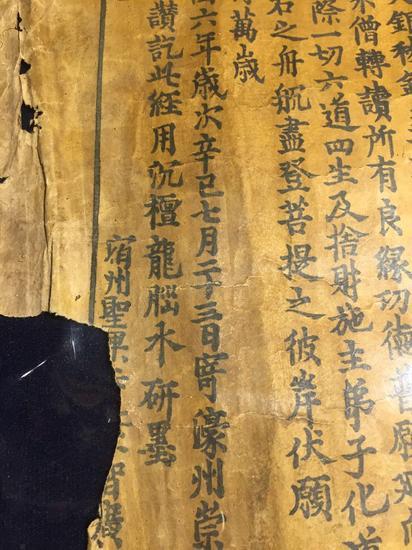 僧轉讀所有良緣功德普願
際一切六道四生及捨財施主弟子化道
若之舟航盡登菩提之彼岸伏願
萬歲
六年歲次辛巳七月二十三日寄濠州崇
讚訖此經用沉檀龍腦水研墨
宿州聖果